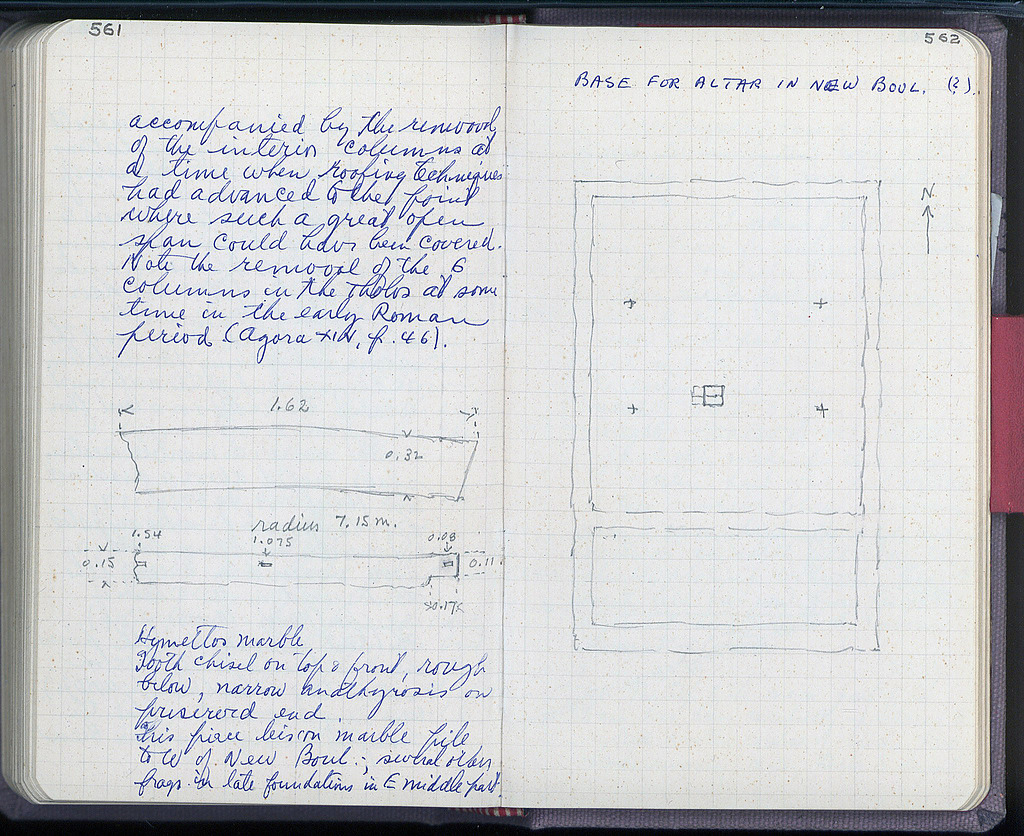 561
accompanied by the removal
of the interior columns at
a time when roofing techniques
had advanced to the point
where such a great open
span could have been covered.
Note the removal of the 6
columns in the Tholos at some
time in the early Roman
period (Agora XIV, p. 46).
1.62
0.32
radius 7.15 m.
1.54 1.075 0.08
0.15 0.11
0.17
Hymettos marble
Tooth chisel on top & front, rough
below, narrow anathyrosis on
preserved end.
This piece lies on marble pile
to W of New Boul.; several other
frags. in late foundations in E middle part.
562
BASE FOR ALTAR IN NEW BOUL. (?).
N